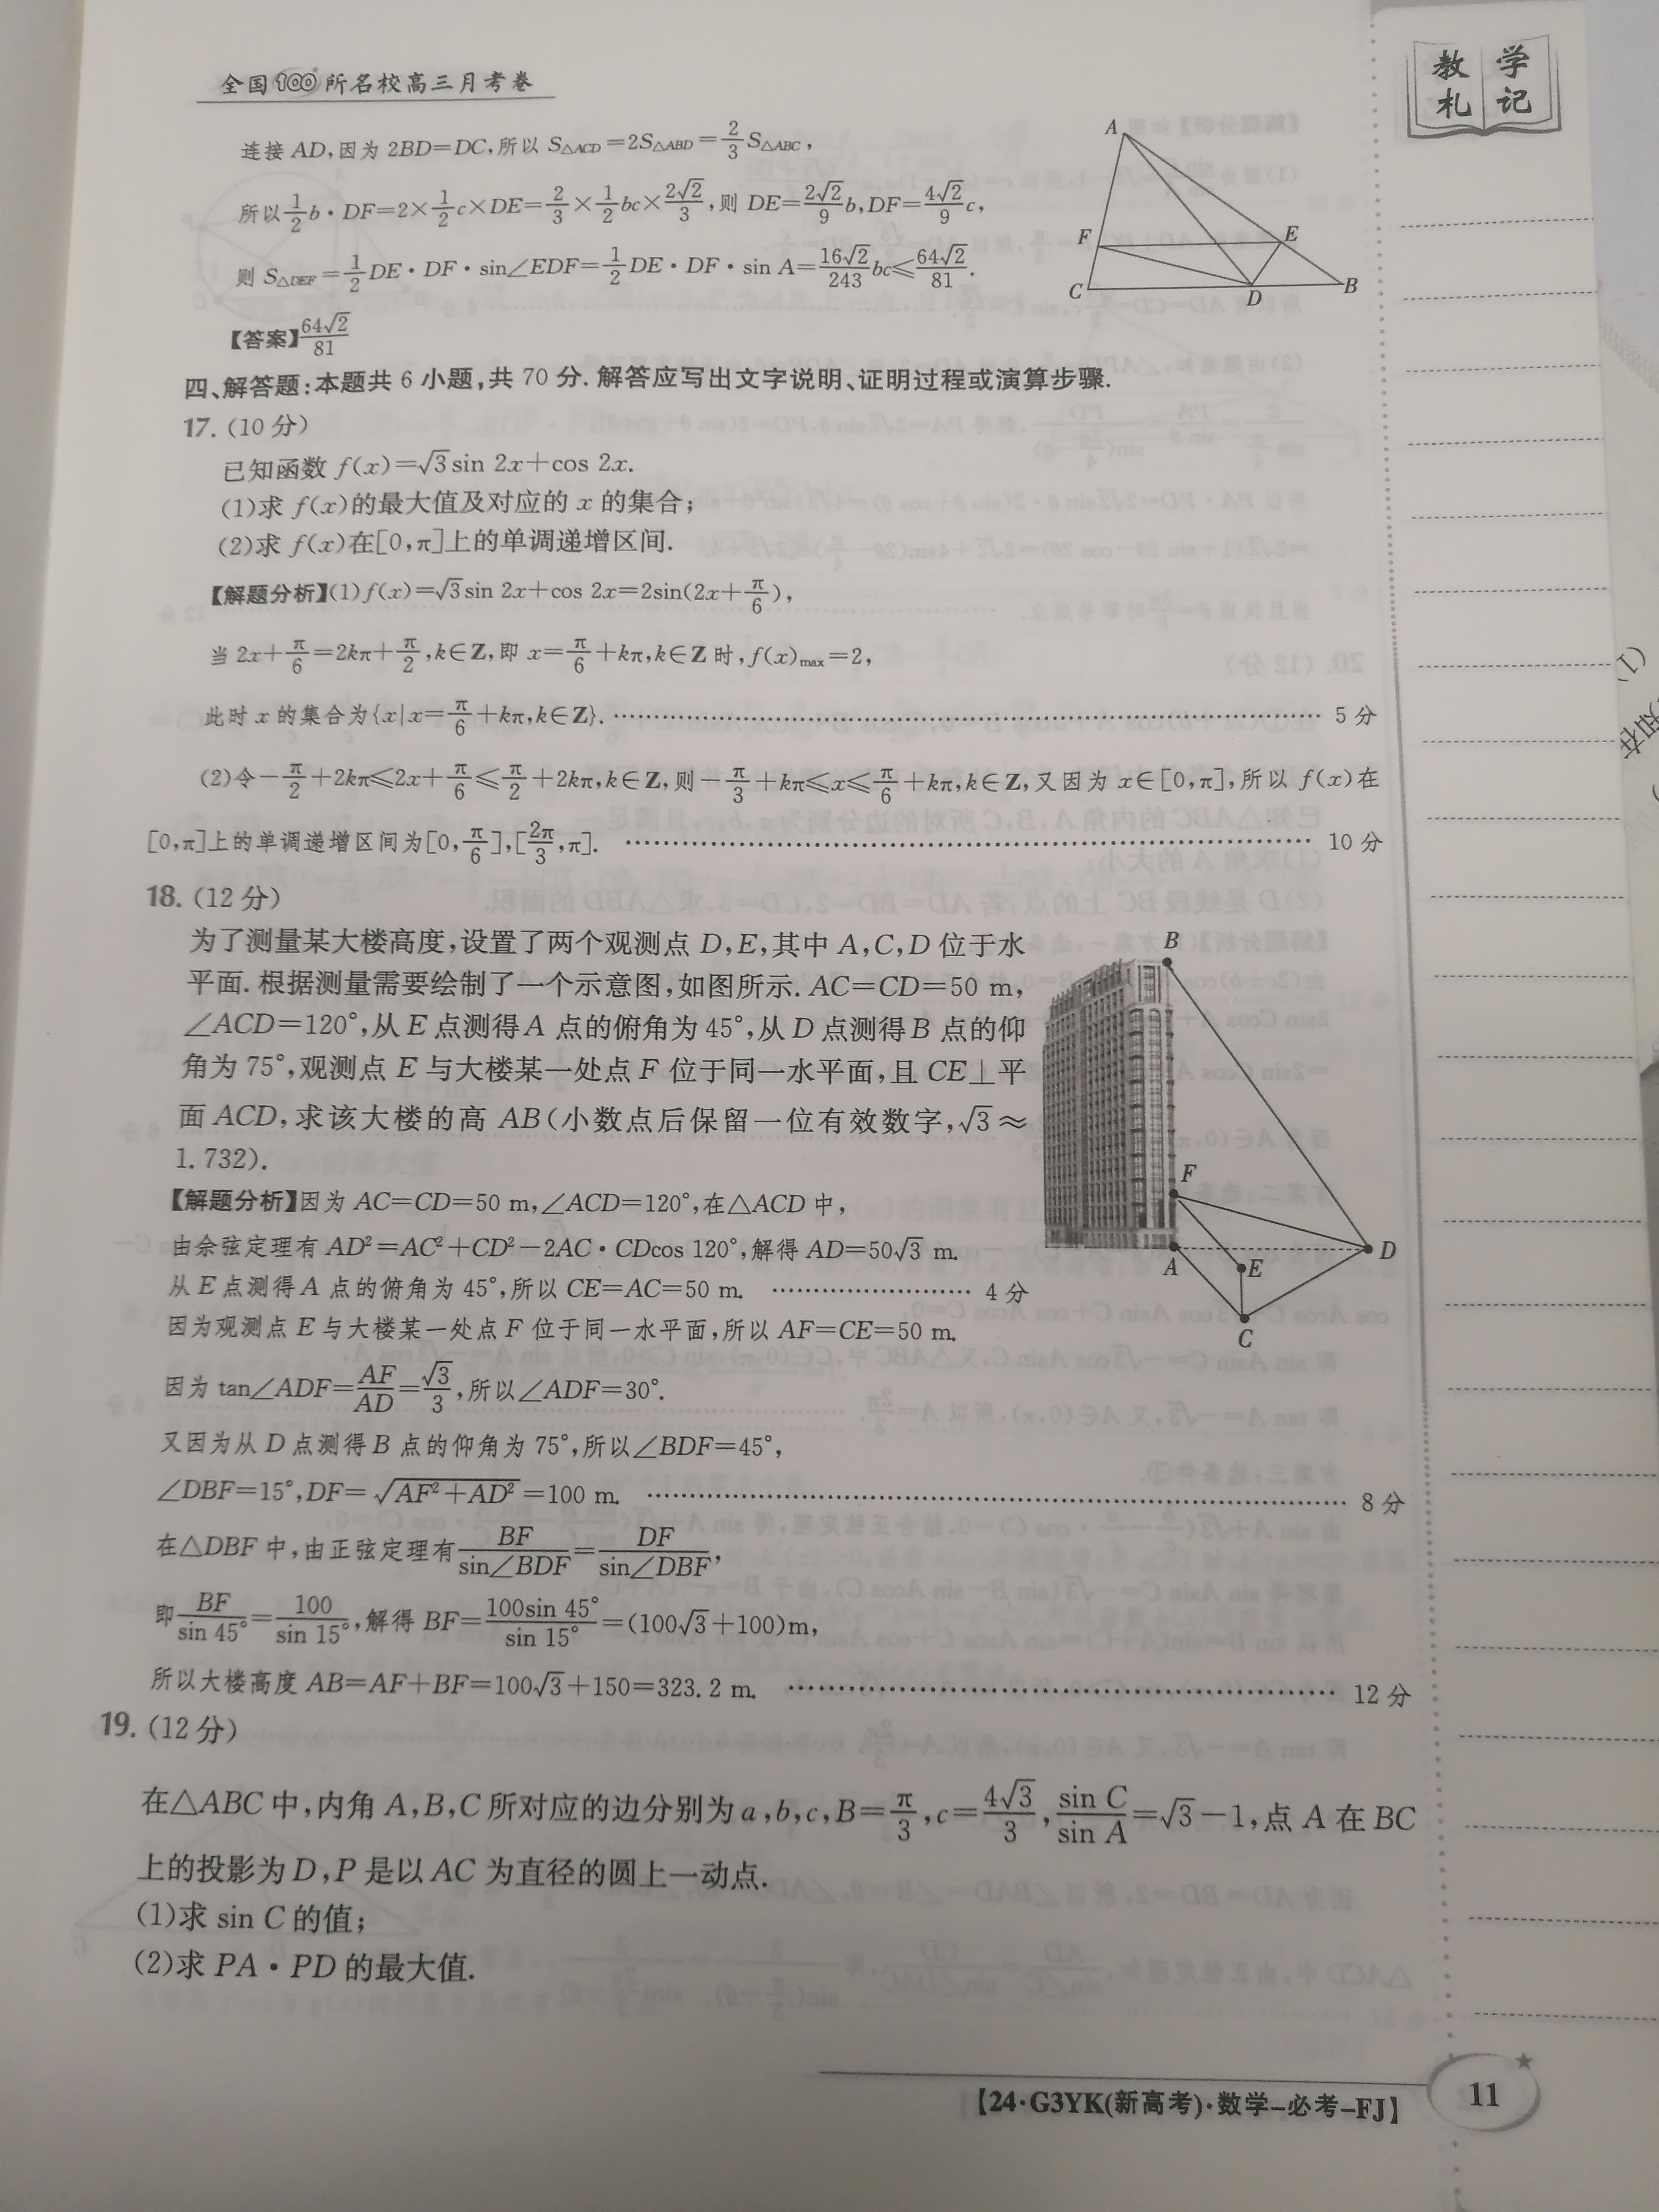 全国100所名校高三月考卷
教学
札记
连接 AD,因为 2BD=DC,所以 S△ACD=2S△ABD=2/3 S△ABC,
所以1/2 b·DF=2×1/2 c×DE=2/3×1/2 bc×2√2/3,则 DE=2√2/9 b,DF=4√2/9 c,
则 S△DEF=1/2 DE·DF·sin∠EDF=1/2 DE·DF·sin A=16√2/243 bc≤64√2/81.
A
F
E
C
D
B
【答案】64√2/81
四、解答题:本题共 6 小题,共 70 分.解答应写出文字说明、证明过程或演算步骤.
17.(10 分)
已知函数 f(x)=√3sin 2x+cos 2x.
(1)求 f(x)的最大值及对应的 x 的集合;
(2)求 f(x)在[0,π]上的单调递增区间.
【解题分析】(1)f(x)=√3sin 2x+cos 2x=2sin(2x+π/6),
当 2x+π/6=2kπ+π/2,k∈Z,即 x=π/6+kπ,k∈Z 时,f(x)max=2,
此时 x 的集合为{x|x=π/6+kπ,k∈Z}. …… 5 分
(2)令-π/2+2kπ≤2x+π/6≤π/2+2kπ,k∈Z,则-π/3+kπ≤x≤π/6+kπ,k∈Z,又因为 x∈[0,π],所以 f(x)在
[0,π]上的单调递增区间为[0,π/6],[2π/3,π]. …… 10 分
18.(12 分)
为了测量某大楼高度,设置了两个观测点 D,E,其中 A,C,D 位于水
平面.根据测量需要绘制了一个示意图,如图所示. AC=CD=50 m,
∠ACD=120°,从 E 点测得 A 点的俯角为 45°,从 D 点测得 B 点的仰
角为 75°,观测点 E 与大楼某一处点 F 位于同一水平面,且 CE⊥平
面 ACD,求该大楼的高 AB(小数点后保留一位有效数字,√3≈
1.732).
B
F
A
E
D
C
【解题分析】因为 AC=CD=50 m,∠ACD=120°,在△ACD 中,
由余弦定理有 AD²=AC²+CD²-2AC·CDcos 120°,解得 AD=50√3 m.
从 E 点测得 A 点的俯角为 45°,所以 CE=AC=50 m. …… 4 分
因为观测点 E 与大楼某一处点 F 位于同一水平面,所以 AF=CE=50 m.
因为 tan∠ADF=AF/AD=√3/3,所以∠ADF=30°.
又因为从 D 点测得 B 点的仰角为 75°,所以∠BDF=45°,
∠DBF=15°,DF=√(AF²+AD²)=100 m. …… 8 分
在△DBF 中,由正弦定理有BF/sin∠BDF=DF/sin∠DBF,
即BF/sin 45°=100/sin 15°,解得 BF=100sin 45°/sin 15°=(100√3+100)m,
所以大楼高度 AB=AF+BF=100√3+150=323.2 m. …… 12 分
19.(12 分)
在△ABC 中,内角 A,B,C 所对应的边分别为 a,b,c,B=π/3,c=4√3/3,sin C/sin A=√3-1,点 A 在 BC
上的投影为 D,P 是以 AC 为直径的圆上一动点.
(1)求 sin C 的值;
(2)求 PA·PD 的最大值.
【24·G3YK(新高考)·数学-必考-FJ】
11